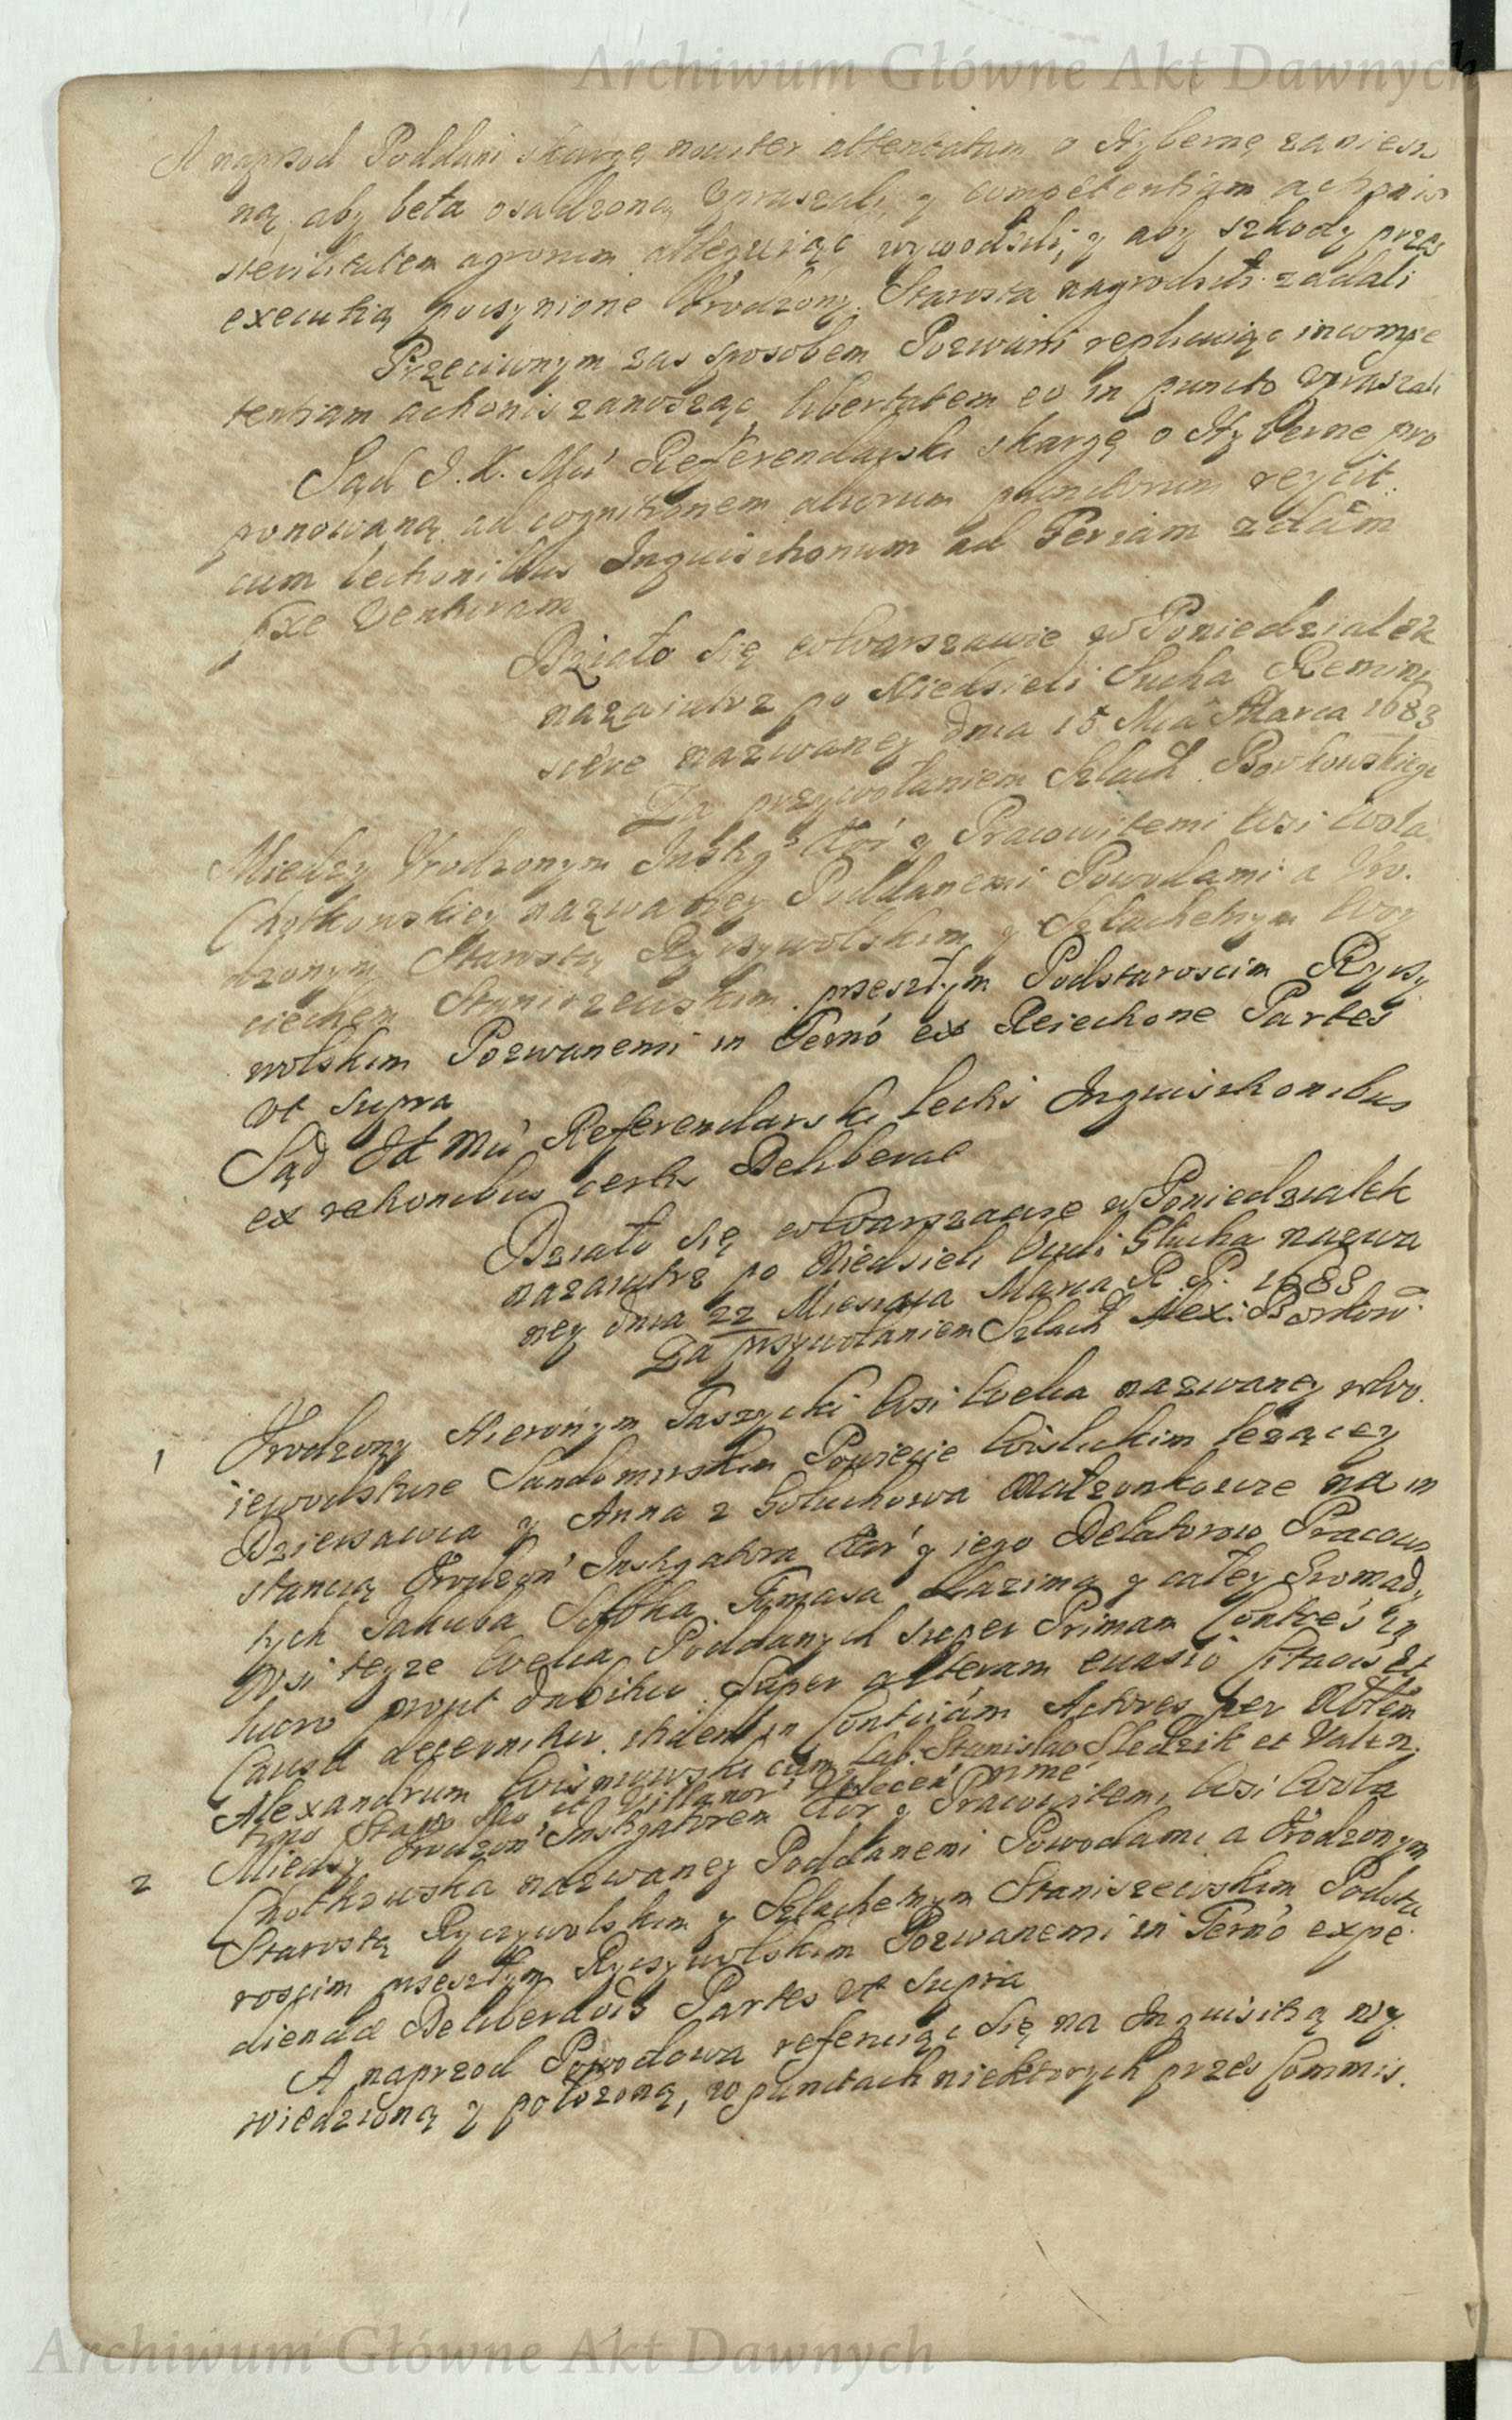 Archiwum Główne Akt Dawnych
A naprzod Poddani skargę nouiter attentatam o Hybernę zaniesio
ną, aby beła osadzona vpraszali, y competentiam actionis
sterilitatem agrorum alleguiąc wywodzili, y aby szkody przez
executią poczynione Vrodzony Starosta nagrodził żądali
Przeciwnym zas sposobem Pozwani replicuiąc incompe
tentiam actionis zanosząc, libertatem eo in puncto vpraszali
Sąd J. K. Mći Referendarski skargę o Hybernę pro
ponowaną ad cognitionem aliorum punctorum reycit
cum lectionibus Inquisitionum ad Feriam 2dam
pxe Venturam
Działo się w Warszawie w Poniedziałek
nazaiutrz po Niedzieli Sucha Remini
scere nazwaney dnia 15 Mca Marca 1683
Za przywołaniem Szlach. Borkowskiego
Między Vrodzonym Instig. Kor. y Pracowitemi Wsi Wola
Chotkowskiey nazwaney Poddanemi Powodami a Vro.
dzonym Starostą Ryczywolskim y Szlachetnym Woy
ciechem Staniszewskim przeszłym Podstarościm Ryczy
wolskim Pozwanemi in Termo ex Reiectione Partes
vt supra
Sąd JK Mći Referendarski lectis Inquisitionibus
ex rationibus certis Deliberat
Działo się w Warszawie w Poniedziałek
nazaiutrz po Niedzieli Oculi Głucha nazwa
ney dnia 22 Miesiąca Marca R. P. 1683
Za przywołaniem Szlach Alex: Borkow
1 Vrodzony Hieronym Taszycki Wsi Wełca nazwaney w Wo.
iewodztwie Sandomirskim Powiecie Wislickim leżącey
Dzierzawca y Anna z Gołuchowa Małzonkowie na in
stancią Vrodzon Instigatora Kor y iego Delatorow Pracowi
tych Jakuba Tomasza Kazimą y całey Gromady
Wsi teyze Wełca Poddanych super Primam Contres in
lucro prout super alteram euasio Citaois et
Causae decernitur. itidem in Contuiam Actores per Nobilem
Alexandrum Wisniowski cum Lab. Stanislao Sledzik et Valen
tino
2 Między Vrodzon Instigatorem Kor y Pracowitemi Wsi Wola
Chotkowska nazwaney Poddanemi Powodami a Vrodzonym
Starostą Ryczywolskim y Szlachetnym Staniszewskim Podsta
roscim przeszłym Ryczywolskim Pozwanemi in Termo expe
diendae Deliberaois Partes vt supra
A naprzod Powodowa referuiąc się na Inquisitią wy
wiedzioną y położoną, w punctach niektorych przez Commis.
Archiwum Główne Akt Dawnych